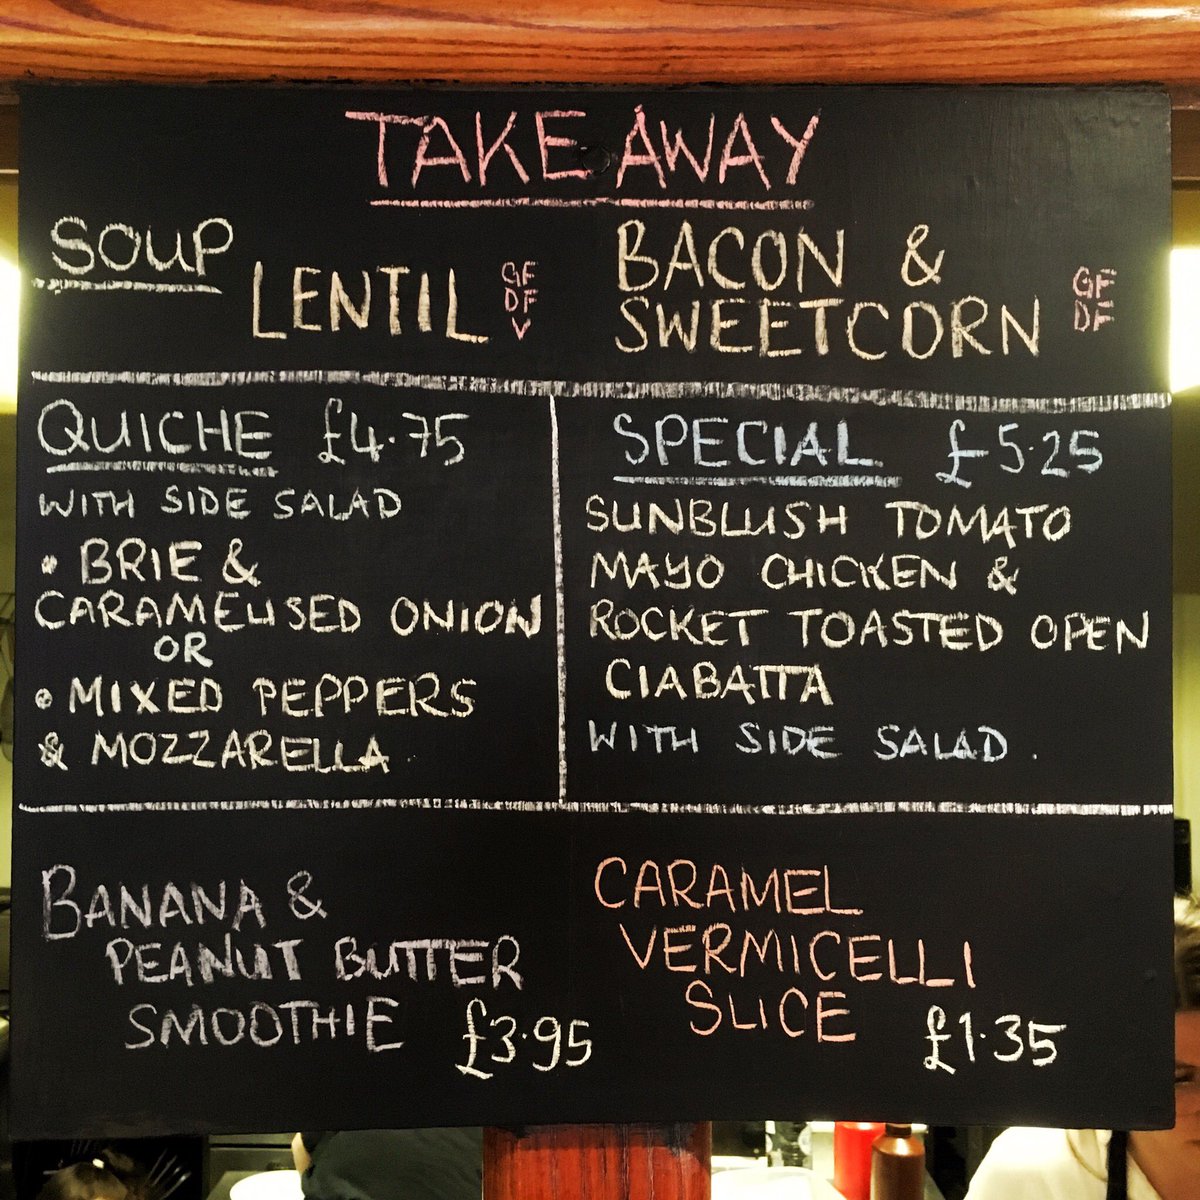 TAKE AWAY
SOUP
LENTIL
GF
DF
V
BACON &
SWEETCORN
GF
DF
QUICHE £4.75
WITH SIDE SALAD
• BRIE &
CARAMELISED ONION
OR
• MIXED PEPPERS
& MOZZARELLA
SPECIAL £5.25
SUNBLUSH TOMATO
MAYO CHICKEN &
ROCKET TOASTED OPEN
CIABATTA
WITH SIDE SALAD.
BANANA &
PEANUT BUTTER
SMOOTHIE £3.95
CARAMEL
VERMICELLI
SLICE £1.35